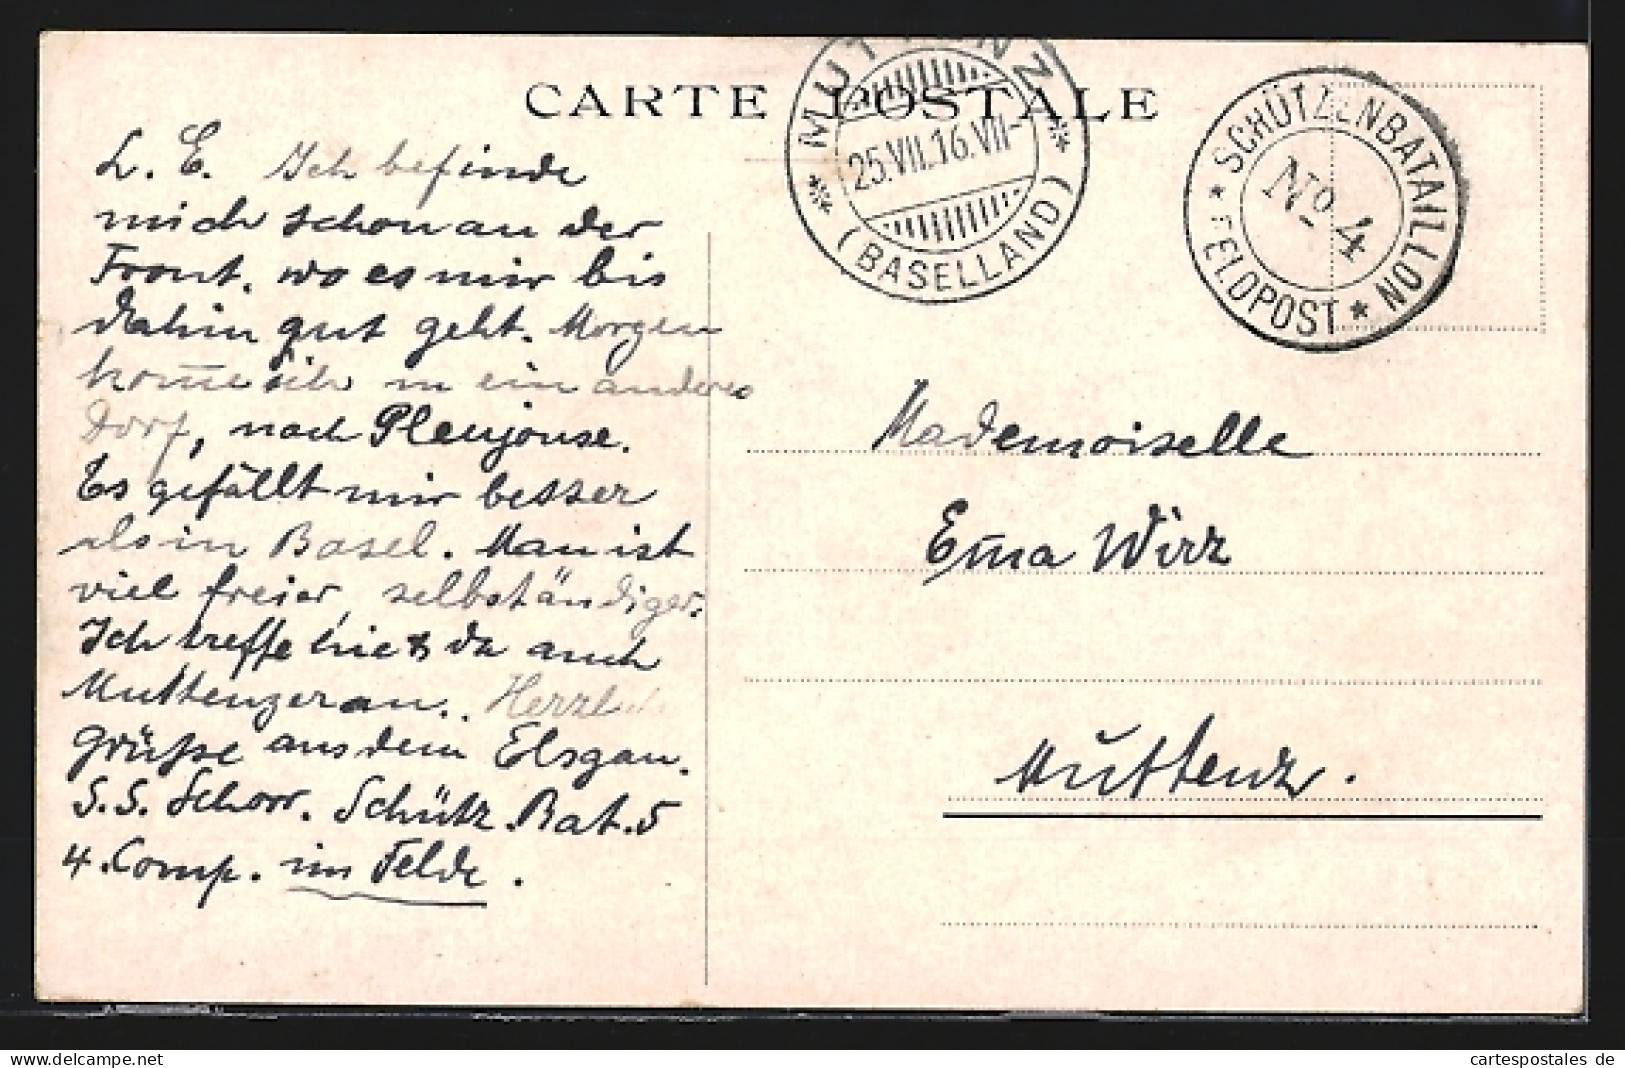 CARTE POSTALE
MUTTENZ
25.VII.16.VII-
(BASELLAND)
SCHÜTZENBATAILLON
No 4
FELDPOST
L. E. Ich befinde
mich schon an der
Front, wo es mir bis
dahin gut geht. Morgen
kom̅e ich in ein anderes
Dorf, nach Pleujouse.
Es gefällt mir besser
als in Basel. Man ist
viel freier, selbständiger.
Ich treffe hie & da auch
Muttenzer an. Herzliche
Grüsse aus dem Elsgau.
S. S. Schorr. Schütz. Bat. 5
4. Comp. im Felde.
Mademoiselle
Em̅a Wirz
Muttenz.
cartespostales de